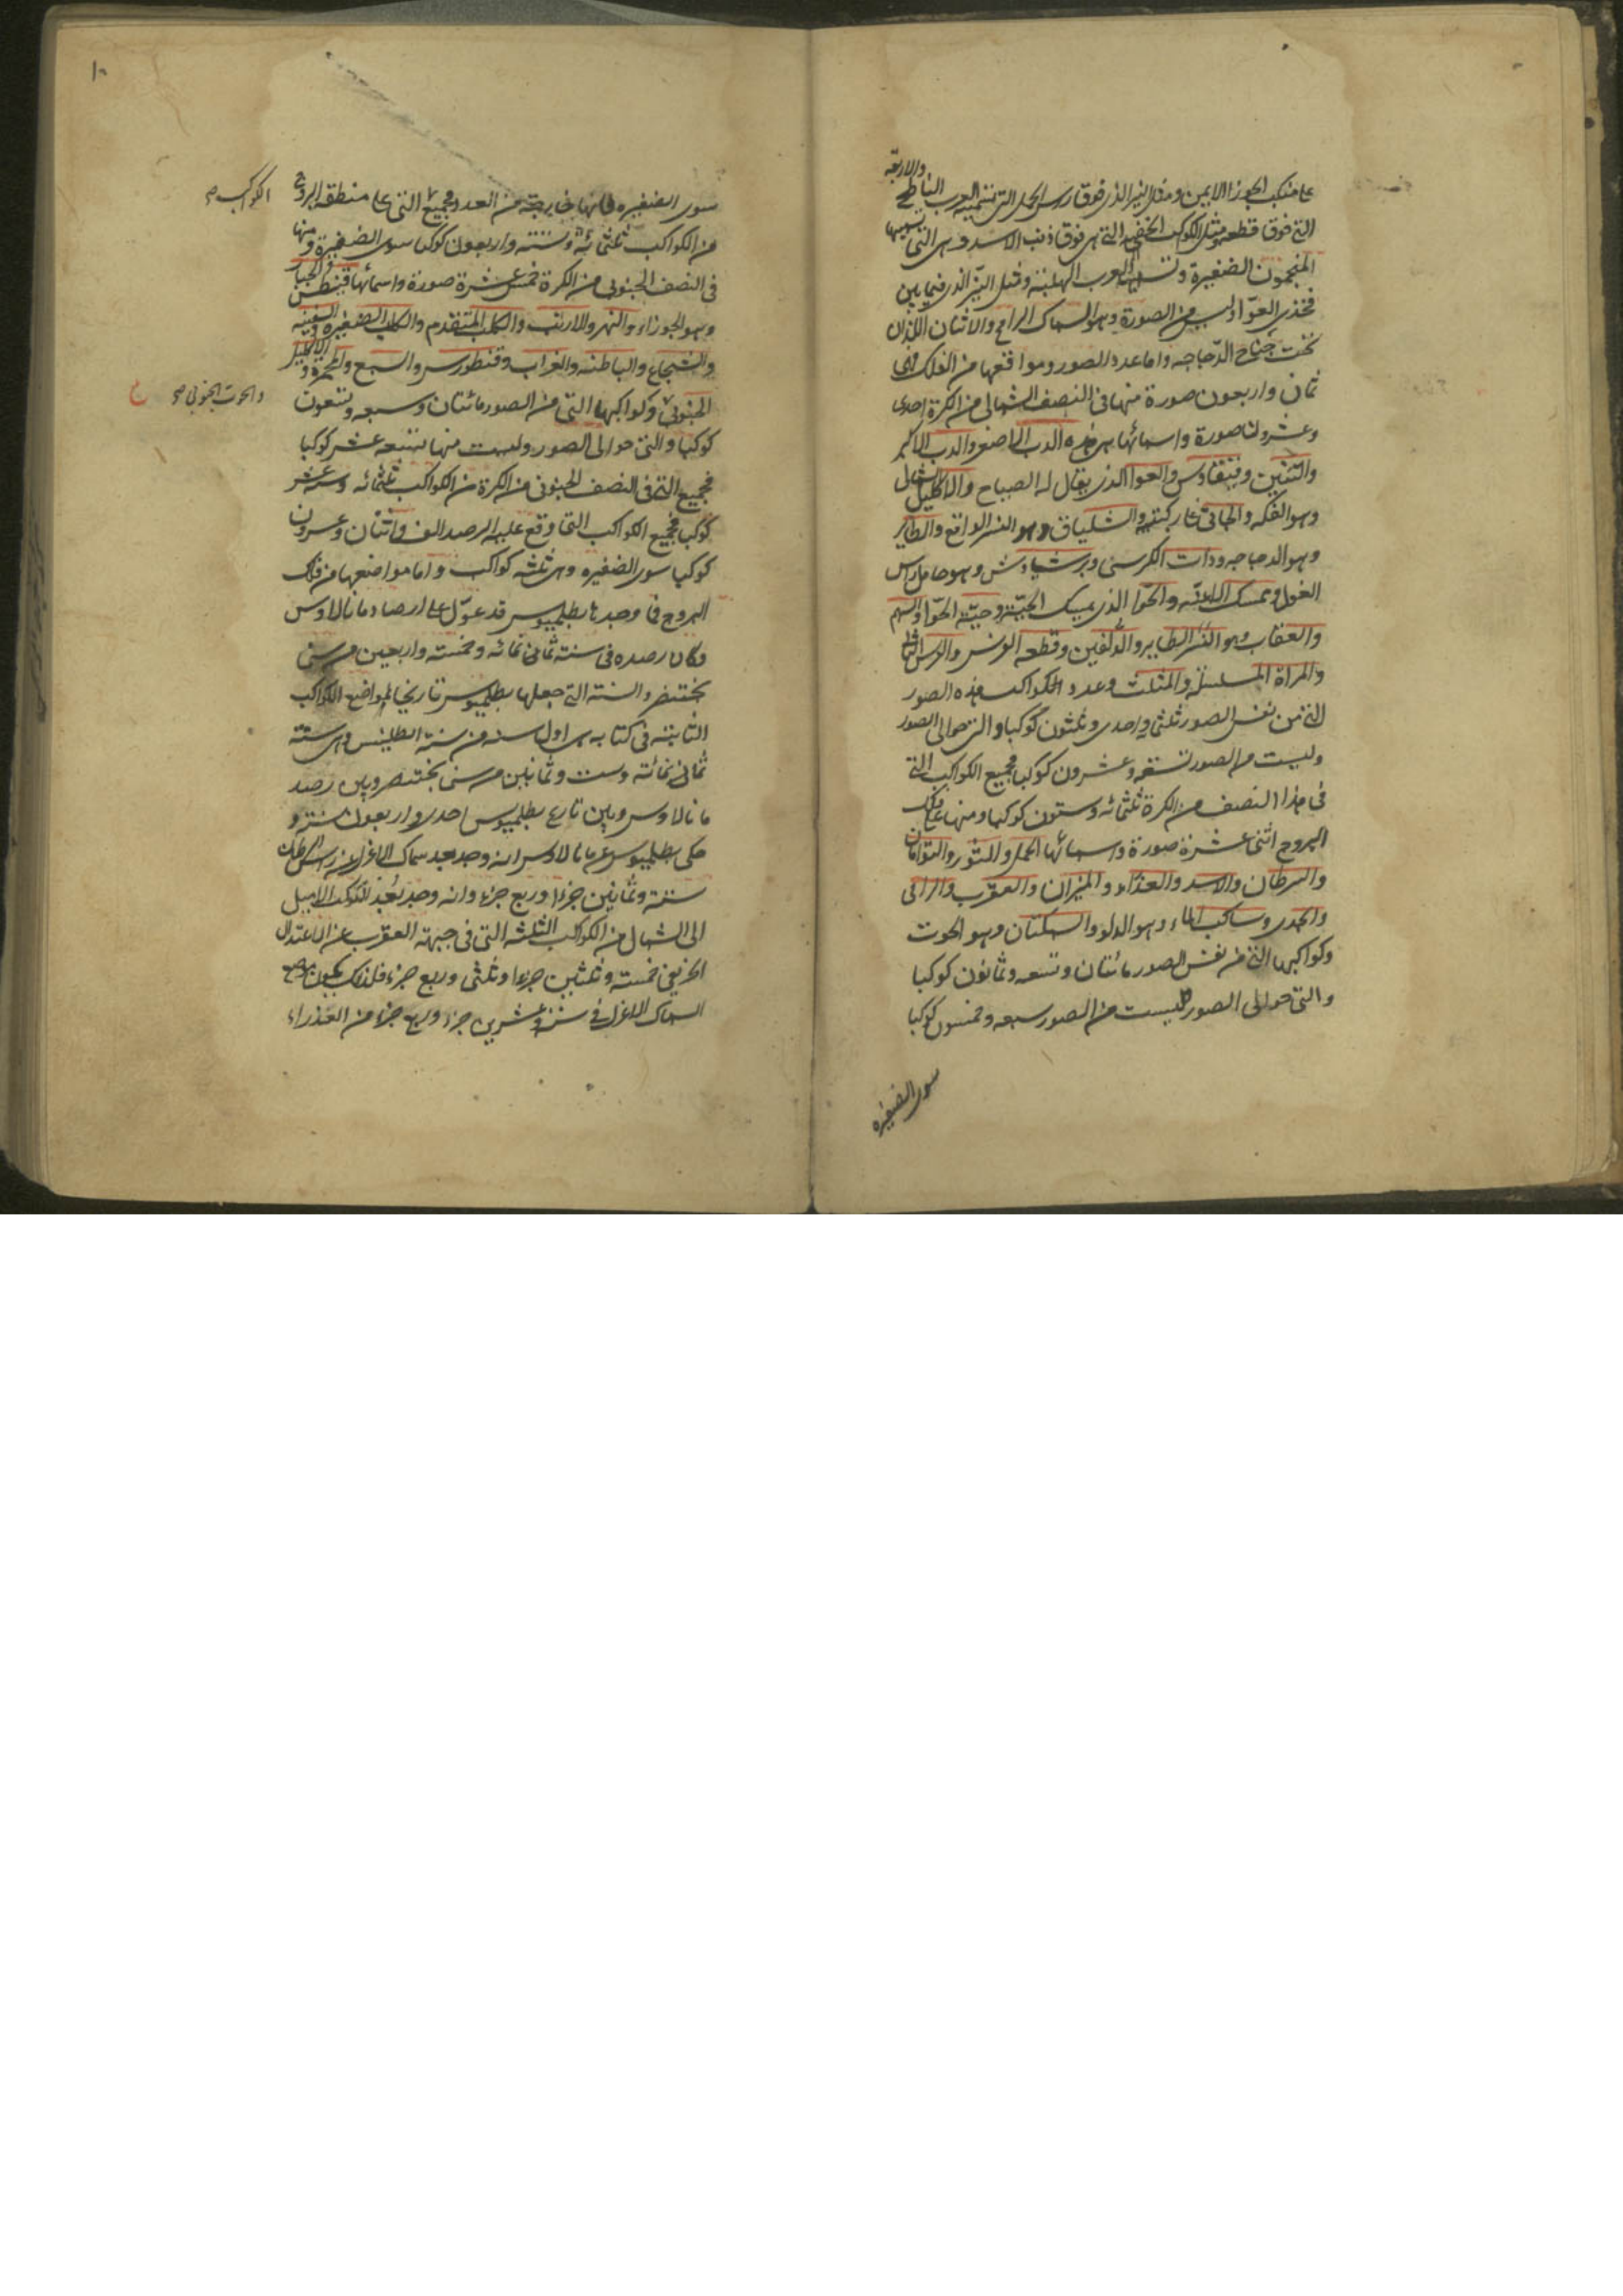 والاربعة
على منكب الجوزا الايمن ومثل النير الذى فوق راس الحمل التى تسميه العرب الناطح
التى فوق قطعه ومثل الكوكب الخفيه التى هى فوق ذنب الاسد وهى التى يسميها
المنجمون الضفيرة وتسميها العرب الهلبة ومثل النير الذى فيما بين
فخذى العوّا وليس من الصورة وهو السماك الرامح والاثنان اللذان
تحت جناح الدّجاجه واما عدد الصور ومواقعها من الفلك فهى
ثمان واربعون صورة منها فى النصف الشمالى من الكرة احدى
وعشرون صورة واسمائها هى هذه الدب الاصغر والدب الاكبر
والتنين وقيقاوس والعوا الذى يقال له الصياح والاكليل الشمالى
وهو الفكه والجاثى على ركبتيه والشلياق وهو النسر الواقع والطاير
وهو الدجاجه وذات الكرسى وبرشياوش وهو حامل راس
الغول وممسك الاعنّه والحوّا الذى يمسك الحيّة وحيّة الحوّا والسهم
والعقاب وهو النسر الطاير والدلفين وقطعه الفرس والفرس الثانى
والمراة المسلسلة والمثلث وعدد الكواكب هذه الصور
التى من نفس الصور ثلثمائة واحدى وثلثون كوكبا والتى حوالى الصور
وليست من الصور تسعه وعشرون كوكبا فجميع الكواكب التى
فى هذا النصف من الكرة ثلثمائه وستون كوكبا ومنها على فلك
البروج اثنى عشرة صورة واسمائها الحمل والثور والتوامان
والسرطان والاسد والعذراء والميزان والعقرب والرامى
والجدى وساكب الماء وهو الدلو والسمكتان وهو الحوت
وكواكبها التى من نفس الصور مائتان وتسعه وثمانون كوكبا
والتى حوالى الصور وليست من الصور سبعه وخمسون كوكبا
سوى الضفيره
١٠
سوى الضفيره فانها خارجة من العدد فجميع التى على منطقه البروج
الكواكب صح
من الكواكب ثلثمائه وستة واربعون كوكبا سوى الضفيرة ومنها
فى النصف الجنوبى من الكرة خمس عشرة صورة واسمائها قيطس والجبار
وهو الجوزاء والنهر والارنب والكلب المتقدم والكلب الصغيره والسفينه
والشجاع والباطئه والغراب وقنطورس والسبع والمجمرة والاكليل
الجنوبى وكواكبها التى من الصور مائتان وسبعه وتسعون
والحوت الجنوبى صح
كوكبا والتى حوالى الصور وليست منها تسعه عشر كوكبا
فجميع التى فى النصف الجنوبى من الكرة من الكواكب ثلثمائه وستة عشر
كوكبا فجميع الكواكب التى وقع عليها الرصد الف واثنان وعشرون
كوكبا سوى الضفيره وهى ثلثه كواكب واما مواضعها من فلك
البروج فما وجدنا بطلميوس قد عوّل على ارصاد مانالاوس
وكان رصده فى سنة ثمانى مائه وخمسة واربعين من سنى
بختنصر والسنة التى جعلها بطلميوس تاريخا لمواضع الكواكب
الثابتة فى كتابه هى اول سنه من سنة انطلينس وهى سنة
ثمانى مائته وست وثمانين من سنى بختنصر وبين رصد
مانالاوس وبين تاريخ بطلميوس احدى واربعون سنة و
حكى بطلميوس عن مانالاوس انه وجد بعد سماك الاعزل من راس السرطان
ستة وثمانين جزءا وربع جزء وانه وجد بُعْد الكوكب الاميل
الى الشمال من الكواكب الثلثه التى فى جبهة العقرب عن الاعتدال
الخريفى خمسة وثلثين جزءا وثلثى وربع جزء فلذلك يكون موضع
السماك الاعزل فى ستة وعشرين جزء وربع جزء من العذراء